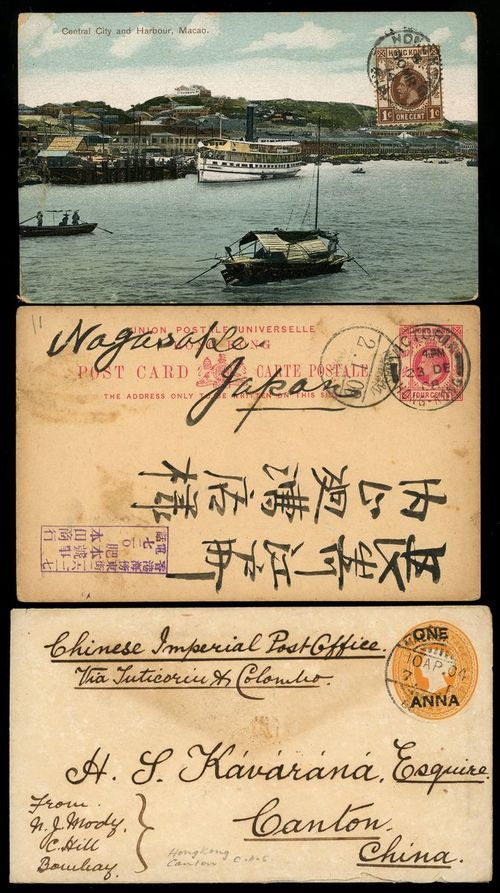 Central City and Harbour, Macao.
HONG KONG
1C
ONE CENT
1C
UNION POSTALE UNIVERSELLE
HONG KONG
POST CARD
CARTE POSTALE
THE ADDRESS ONLY TO BE WRITTEN ON THIS SIDE
Nagasaki
Japan
HONG KONG
FOUR CENTS
VICTORIA
4 PM
23 DE
HONG KONG
長崎江戶
內山廻漕店樣
香港海傍
東街一六二七
肥本號
本田商行
電話七一〇
Chinese Imperial Post Office.
Via Tuticorin & Colombo.
ONE
ANNA
10 AP. 04
H. S. Kávaráná, Esquire.
Canton.
China.
From
N. J. Mody,
C. Hill
Bombay.
Hongkong
Canton